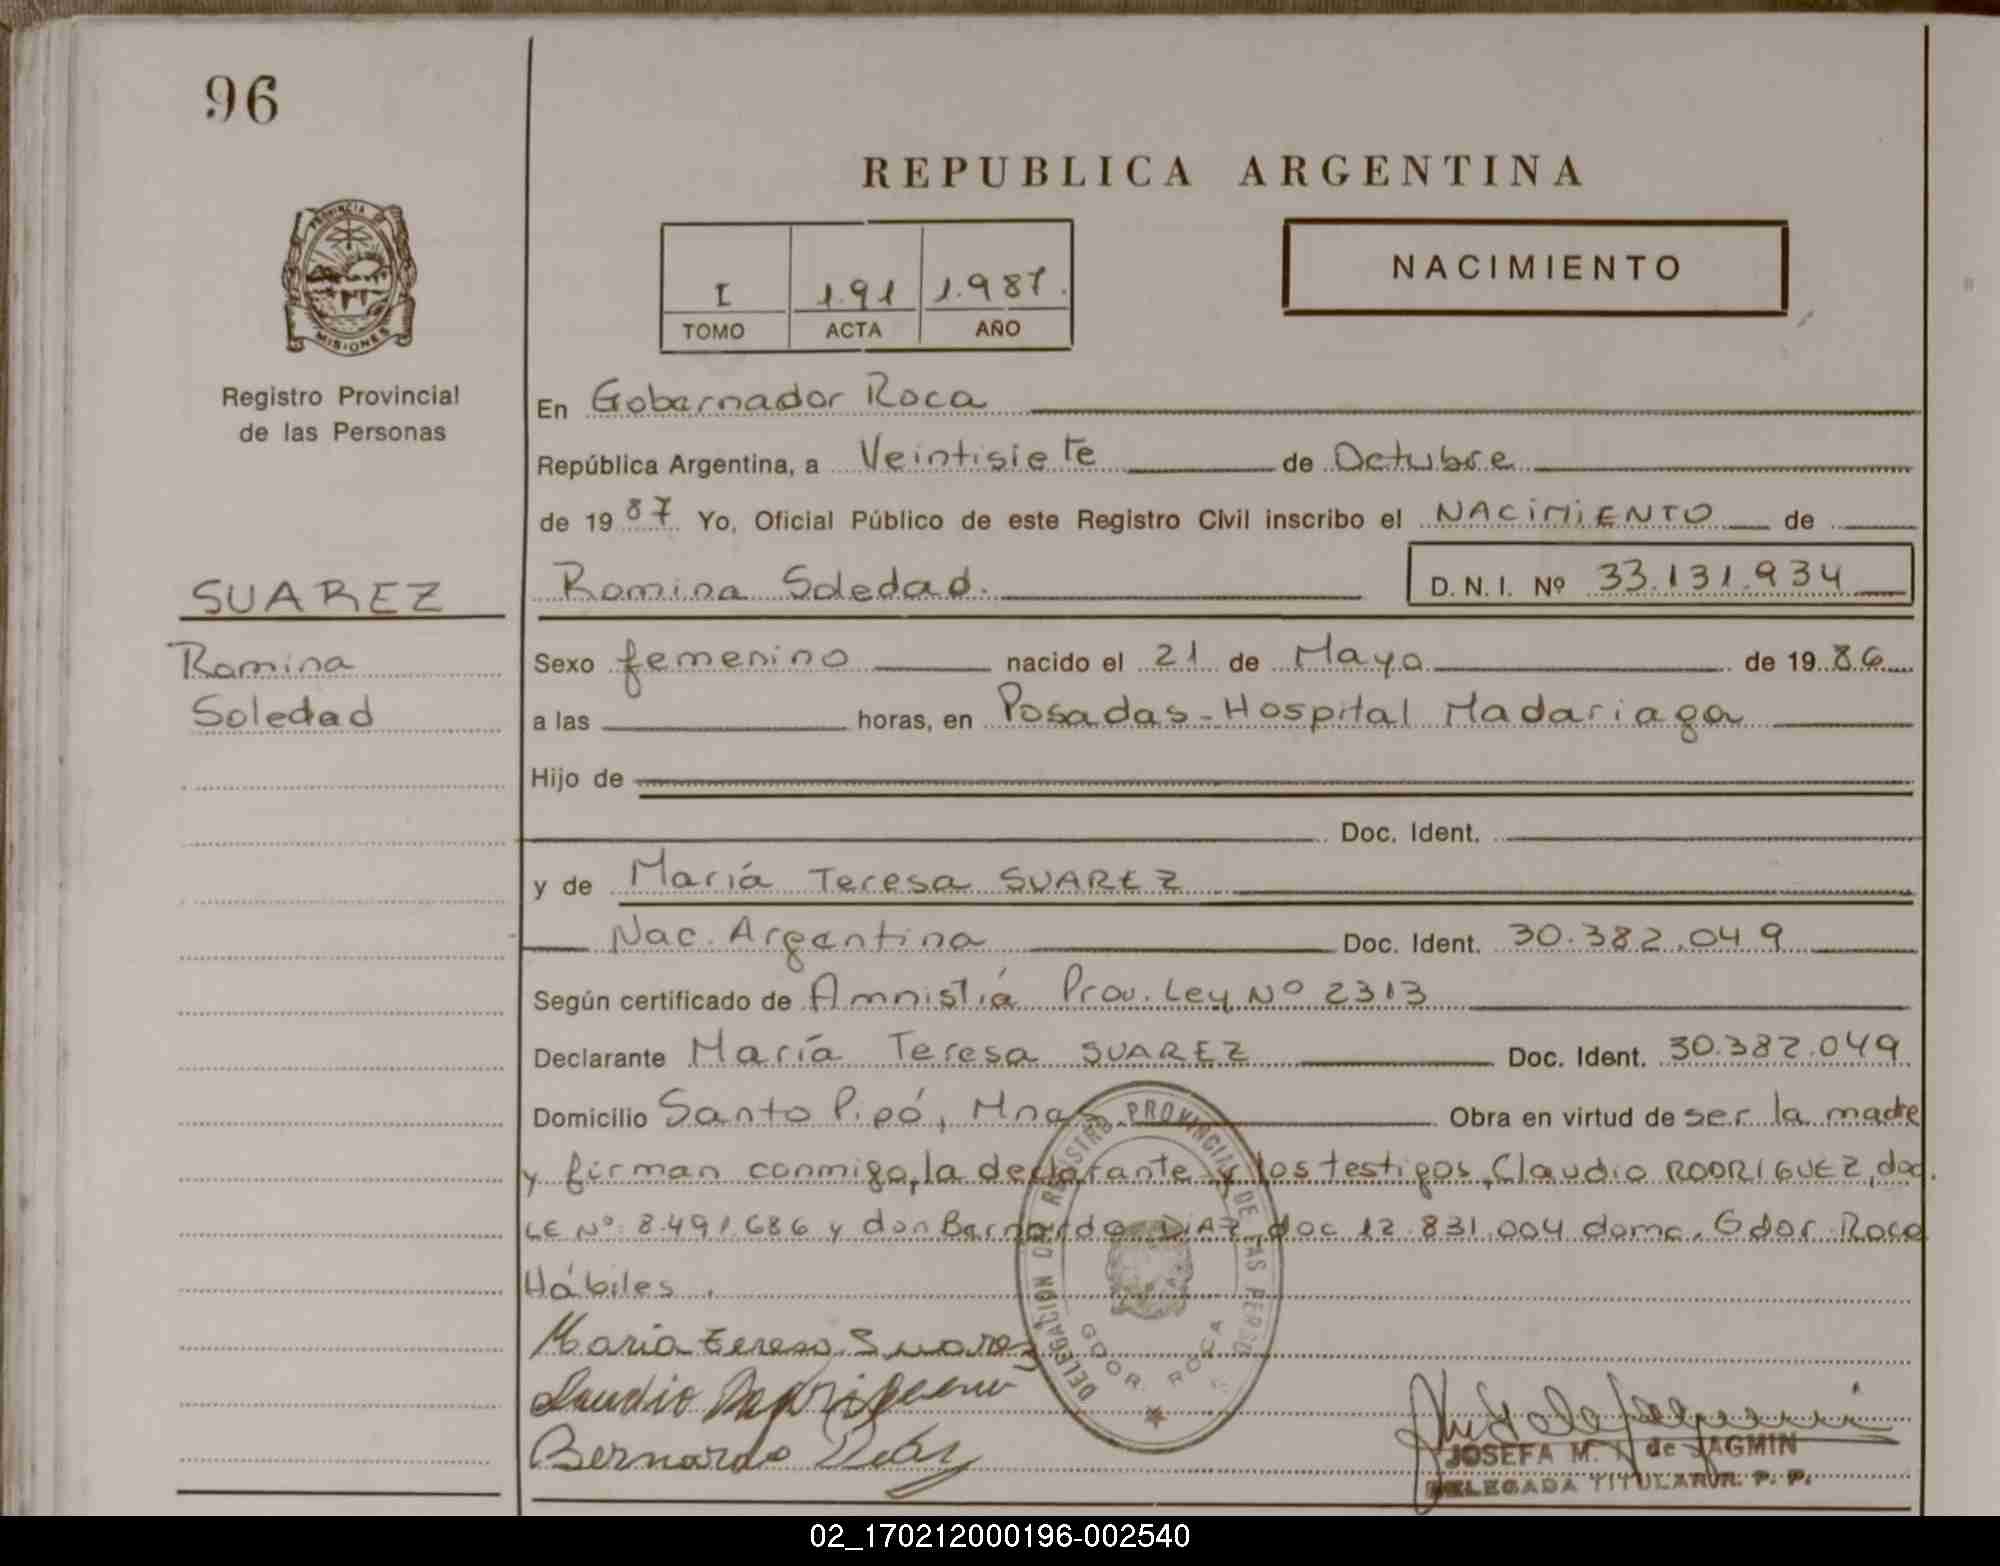 96
REPUBLICA ARGENTINA
PROVINCIA DE
MISIONES
I 191 1.987.
TOMO ACTA AÑO
NACIMIENTO
Registro Provincial
de las Personas
En Gobernador Roca
República Argentina, a Veintisiete de Octubre
de 1987 Yo, Oficial Público de este Registro Civil inscribo el NACIMIENTO de
SUAREZ
Romina Soledad. D. N. I. Nº 33.131.934
Romina
Soledad
Sexo femenino nacido el 21 de Mayo de 1986
a las horas, en Posadas - Hospital Madariaga
Hijo de
Doc. Ident.
y de María Teresa SUAREZ
Nac. Argentina Doc. Ident. 30.382.049
Según certificado de Amnistiá Prov. Ley Nº 2313
Declarante María Teresa SUAREZ Doc. Ident. 30.382.049
Domicilio Santo Pipó, Mnas Obra en virtud de ser la madre
y firman conmigo, la declarante y los testigos, Claudio RODRIGUEZ, doc.
LE Nº 8.491.686 y don Bernardo DIAZ, doc 12.831.004 domc. Gdor. Roca
Hábiles.
DELEGACION DEL REGISTRO PROVINCIAL DE LAS PERSO
GDOR. ROCA
Maria teresa Suarez
Claudio
Bernardo
JOSEFA M. de JAGMIN
DELEGADA TITULAR R. P. P.
02_170212000196-002540